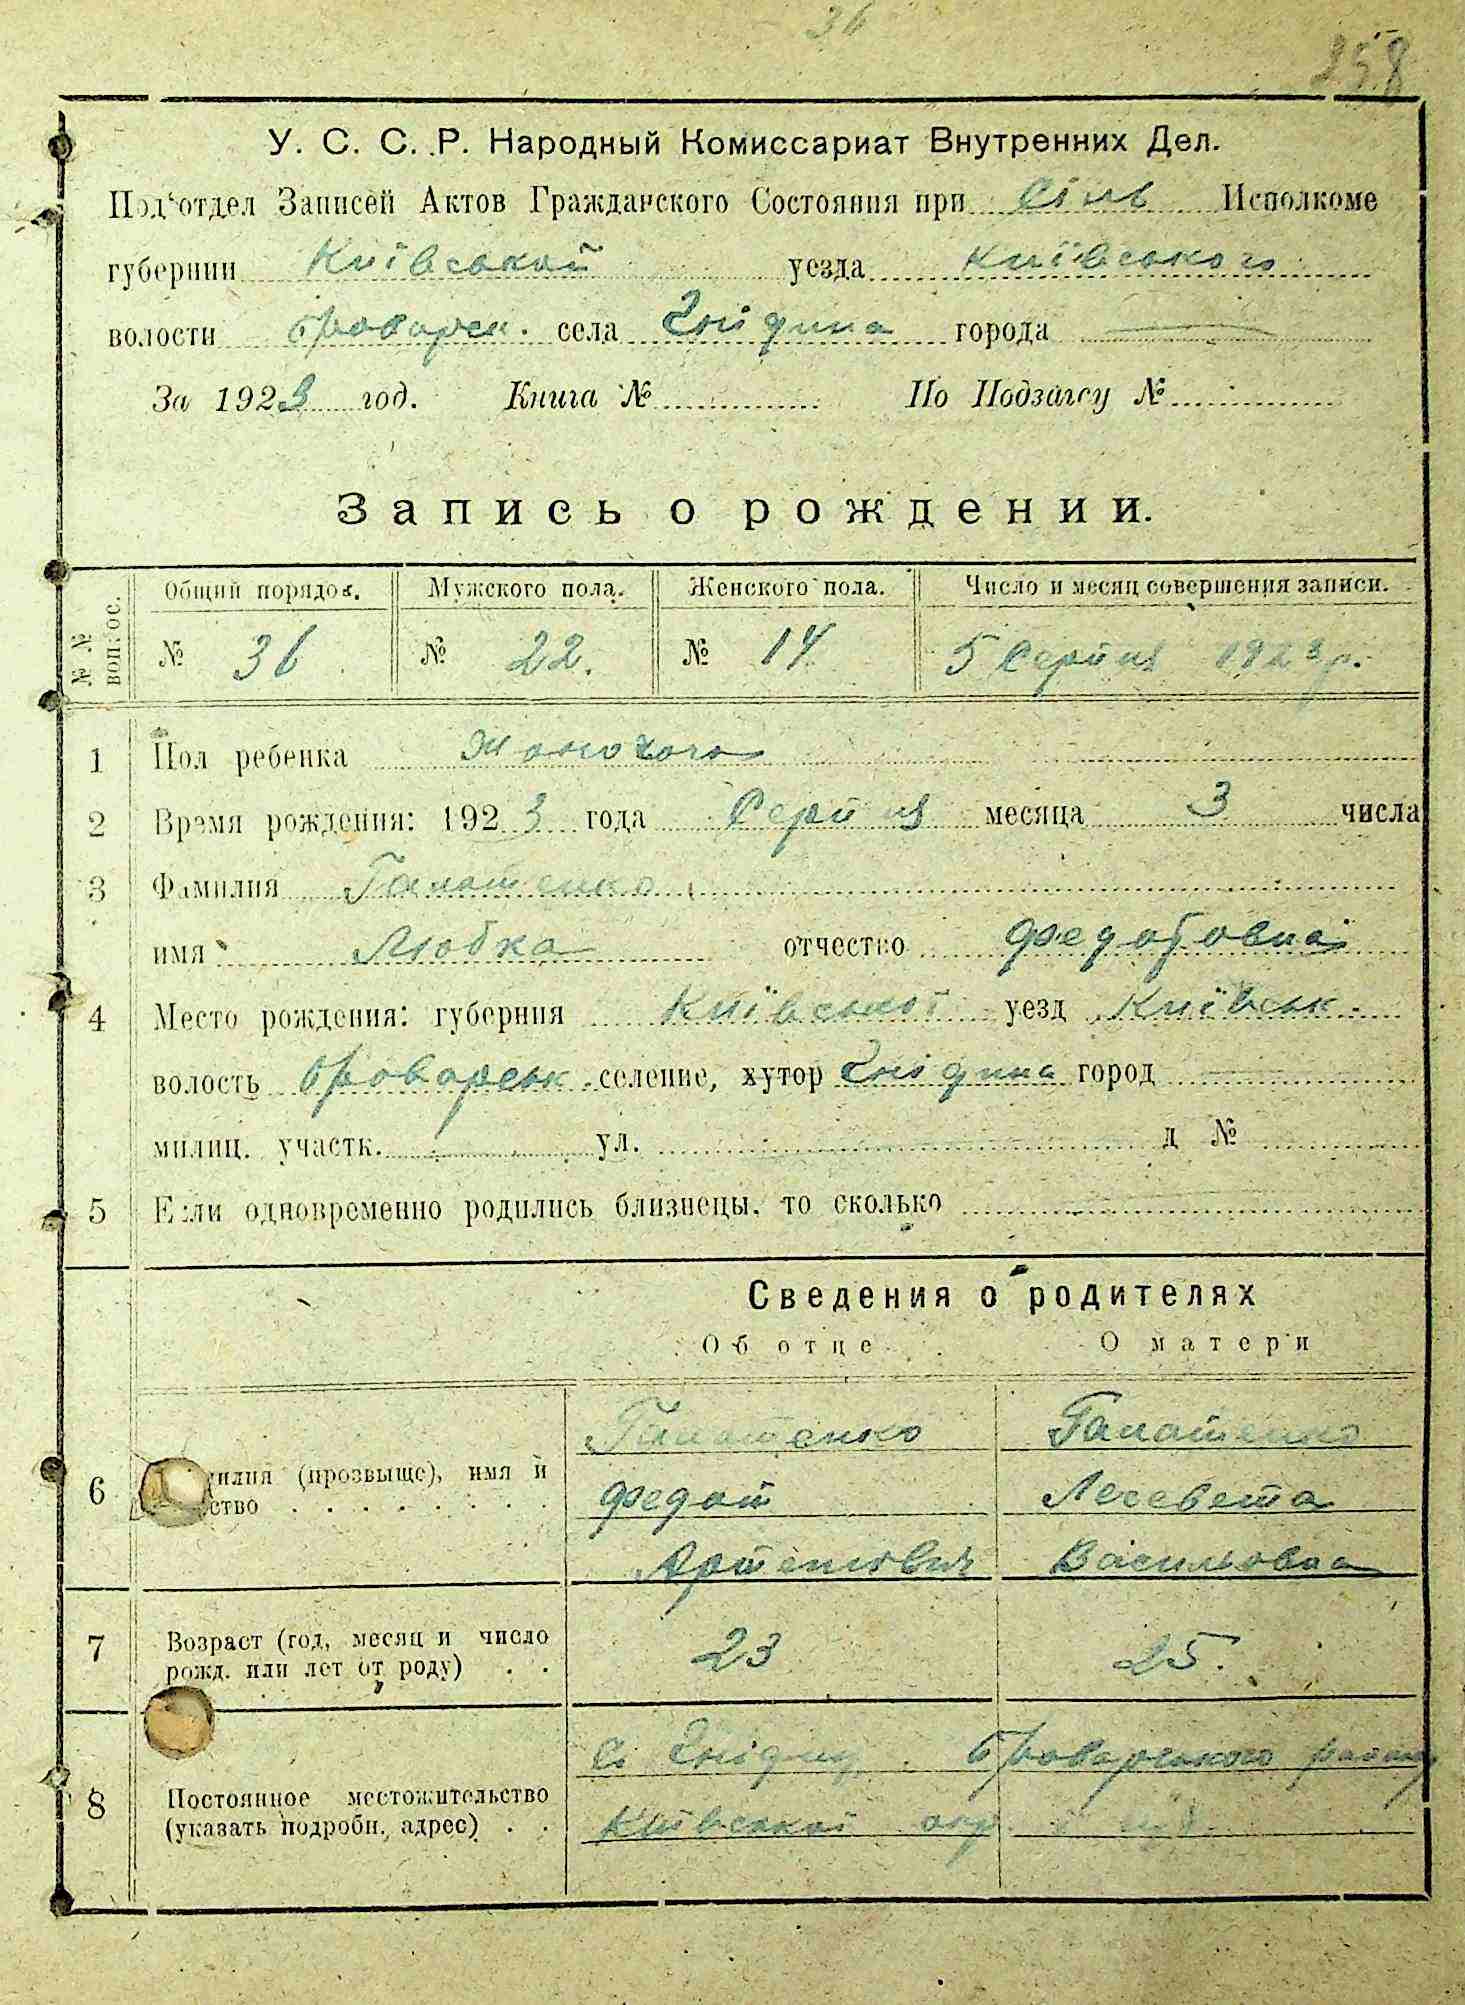 36
258
У. С. С. Р. Народный Комиссариат Внутренних Дел.
Под'отдел Записей Актов Гражданского Состояния при Сіль Исполкоме
губернии Київськой уезда Київського
волости Броварск. села Гнідина города
За 1923 год. Книга № По Подзагсу №
Запись о рождении.
№№ вопрос. Общий порядок. Мужского пола. Женского пола. Число и месяц совершения записи.
№ 36 № 22. № 14 5 Серпня 1923 р.
1 Пол ребенка
2 Время рождения: 1923 года Серпня месяца 3 числа
3 Фамилия Галатенко
имя Любка отчество Федотовна
4 Место рождения: губерния Київської уезд Київськ.
волость Броварськ. селение, хутор Гнідина город
милиц. участк. ул. д №
5 Если одновременно родились близнецы, то сколько
Сведения о родителях
Об отце О матери
Галатенко Галатенко
6 милия (прозвыще), имя и Федот Лесевета
ство Артемович Василовна
7 Возраст (год, месяц и число 23 25.
рожд. или лет от роду)
с. Гнідин, Броварського району
8 Постоянное местожительство
(указать подробн. адрес) Київської окр. і губ.